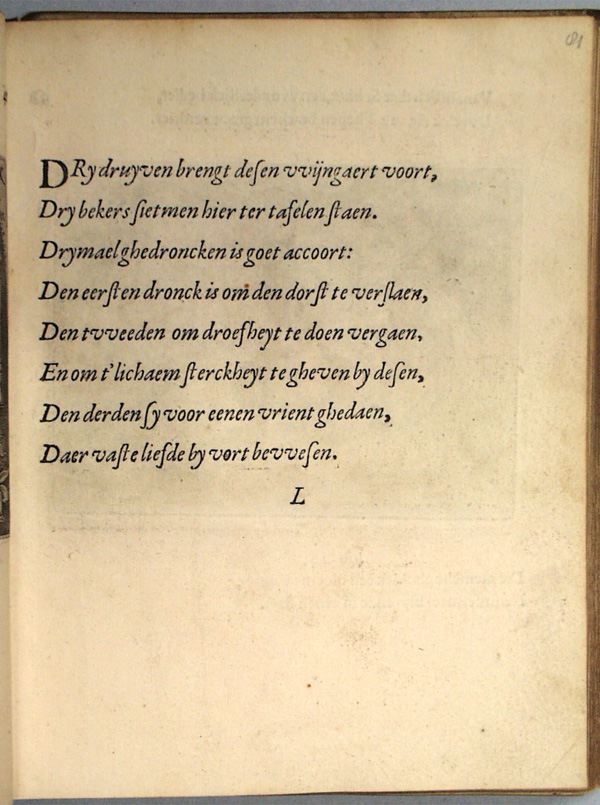 81
DRy druyven brengt deſen vvijngaert voort,
Dry bekers ſietmen hier ter tafelen ſtaen.
Drymael ghedroncken is goet accoort:
Den eerſten dronck is om den dorſt te verſlaen,
Den tvveeden om droefheyt te doen vergaen,
En om t'lichaem ſterckheyt te gheven by deſen,
Den derden ſy voor eenen vrient ghedaen,
Daer vaſte liefde by vort bevveſen.
L